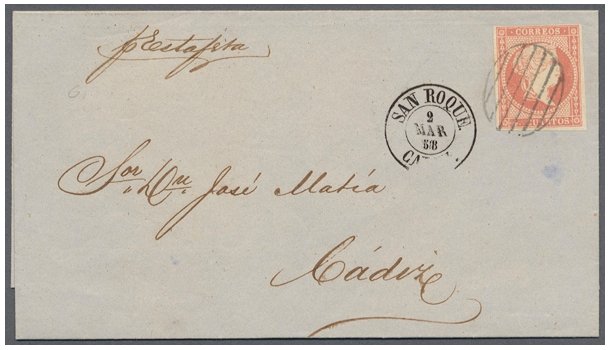 p Estafeta
CORREOS
CUARTOS
SAN ROQUE
2
MAR
58
Sor. Dn. José Matía
Cádiz